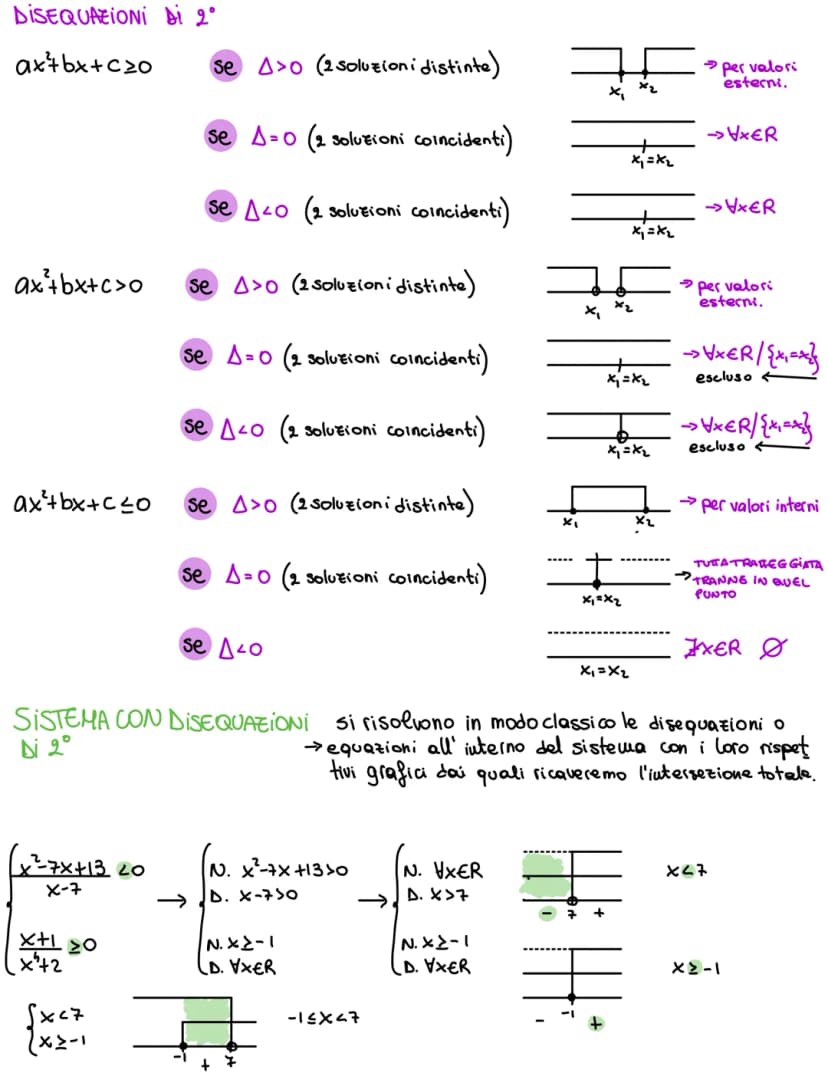 DISEQUAZIONI DI 2°
ax²+bx+c≥0 se Δ>0 (2 soluzioni distinte) x₁ x₂ → per valori esterni.
se Δ=0 (2 soluzioni coincidenti) x₁=x₂ → ∀x∈R
se Δ<0 (2 soluzioni coincidenti) x₁=x₂ → ∀x∈R
ax²+bx+c>0 se Δ>0 (2 soluzioni distinte) x₁ x₂ → per valori esterni.
se Δ=0 (2 soluzioni coincidenti) x₁=x₂ → ∀x∈R/{x₁=x₂} escluso ←
se Δ<0 (2 soluzioni coincidenti) x₁=x₂ → ∀x∈R/{x₁=x₂} escluso ←
ax²+bx+c≤0 se Δ>0 (2 soluzioni distinte) x₁ x₂ → per valori interni
se Δ=0 (2 soluzioni coincidenti) x₁=x₂ → TUTTA TRATTEGGIATA TRANNE IN QUEL PUNTO
se Δ<0 x₁=x₂ ∄x∈R ∅
SISTEMA CON DISEQUAZIONI DI 2°
si risolvono in modo classico le disequazioni o
→ equazioni all'interno del sistema con i loro rispet
tivi grafici dai quali ricaveremo l'intersezione totale.
{ x²-7x+13 / x-7 <0 → { N. x²-7x+13>0 → { N. ∀x∈R - 7 + x<7
D. x-7>0 D. x>7
x+1 / x⁴+2 ≥0 N. x≥-1 N. x≥-1 - -1 + x≥-1
D. ∀x∈R D. ∀x∈R
{ x<7 -1 + 7 -1≤x<7
x≥-1